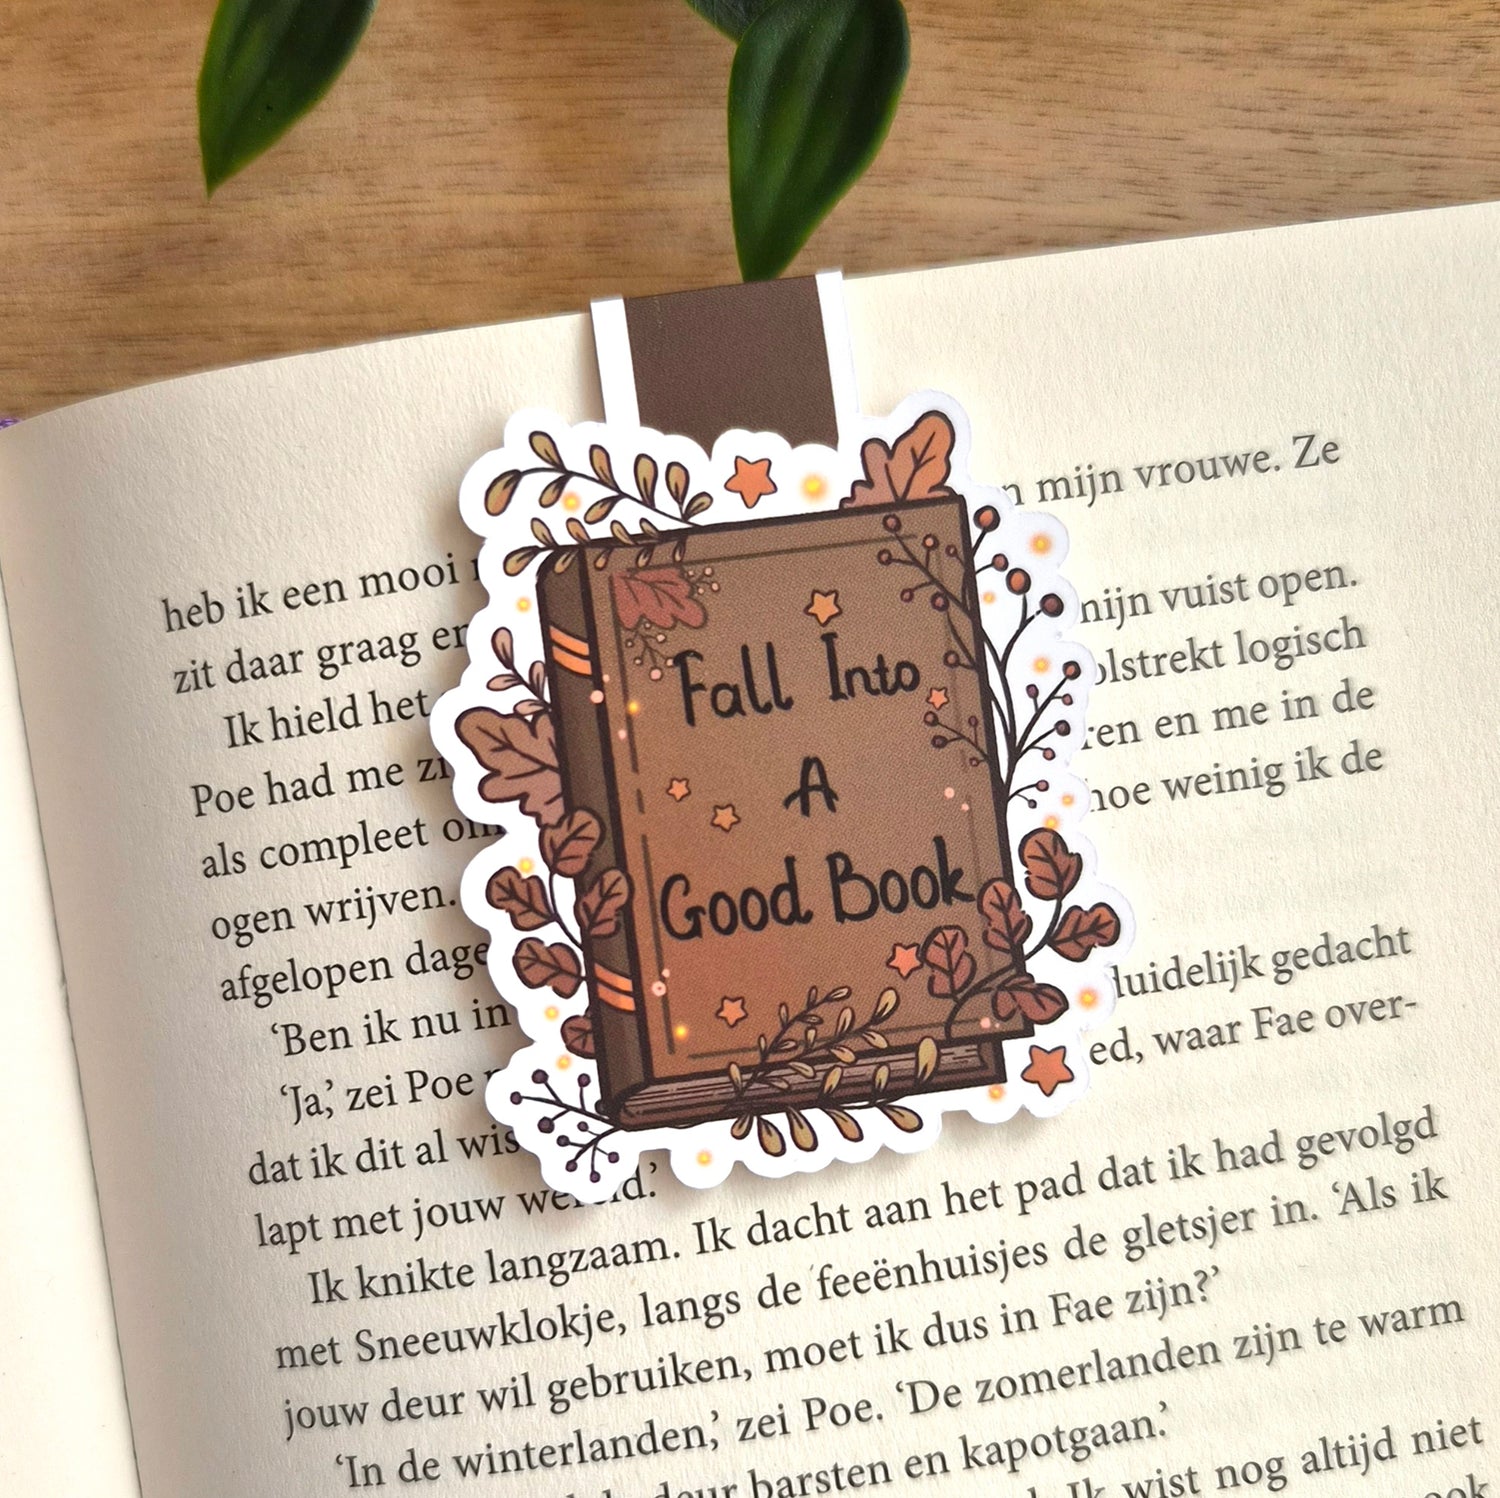 Fall Into
A
Good Book
n mijn vrouwe. Ze
heb ik een mooi
nijn vuist open.
zit daar graag en
olstrekt logisch
Ik hield het
ren en me in de
Poe had me
hoe weinig ik de
als compleet
ogen wrijven.
afgelopen dage
duidelijk gedacht
'Ben ik nu in
ed, waar Fae over-
'Ja,' zei Poe
dat ik dit al wis
lapt met jouw wereld.'
Ik knikte langzaam. Ik dacht aan het pad dat ik had gevolgd
met Sneeuwklokje, langs de feeënhuisjes de gletsjer in. 'Als ik
jouw deur wil gebruiken, moet ik dus in Fae zijn?'
'In de winterlanden,' zei Poe. 'De zomerlanden zijn te warm
deur barsten en kapotgaan.'
Ik wist nog altijd niet
ook